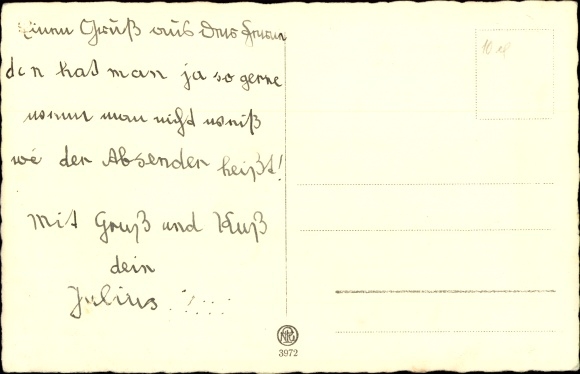 Einen Gruß aus der Ferne
den hat man ja so gerne
wenn man nicht weiß
wé der Absender heißt!
Mit Gruß und Kuß
dein
Julius
10
3972